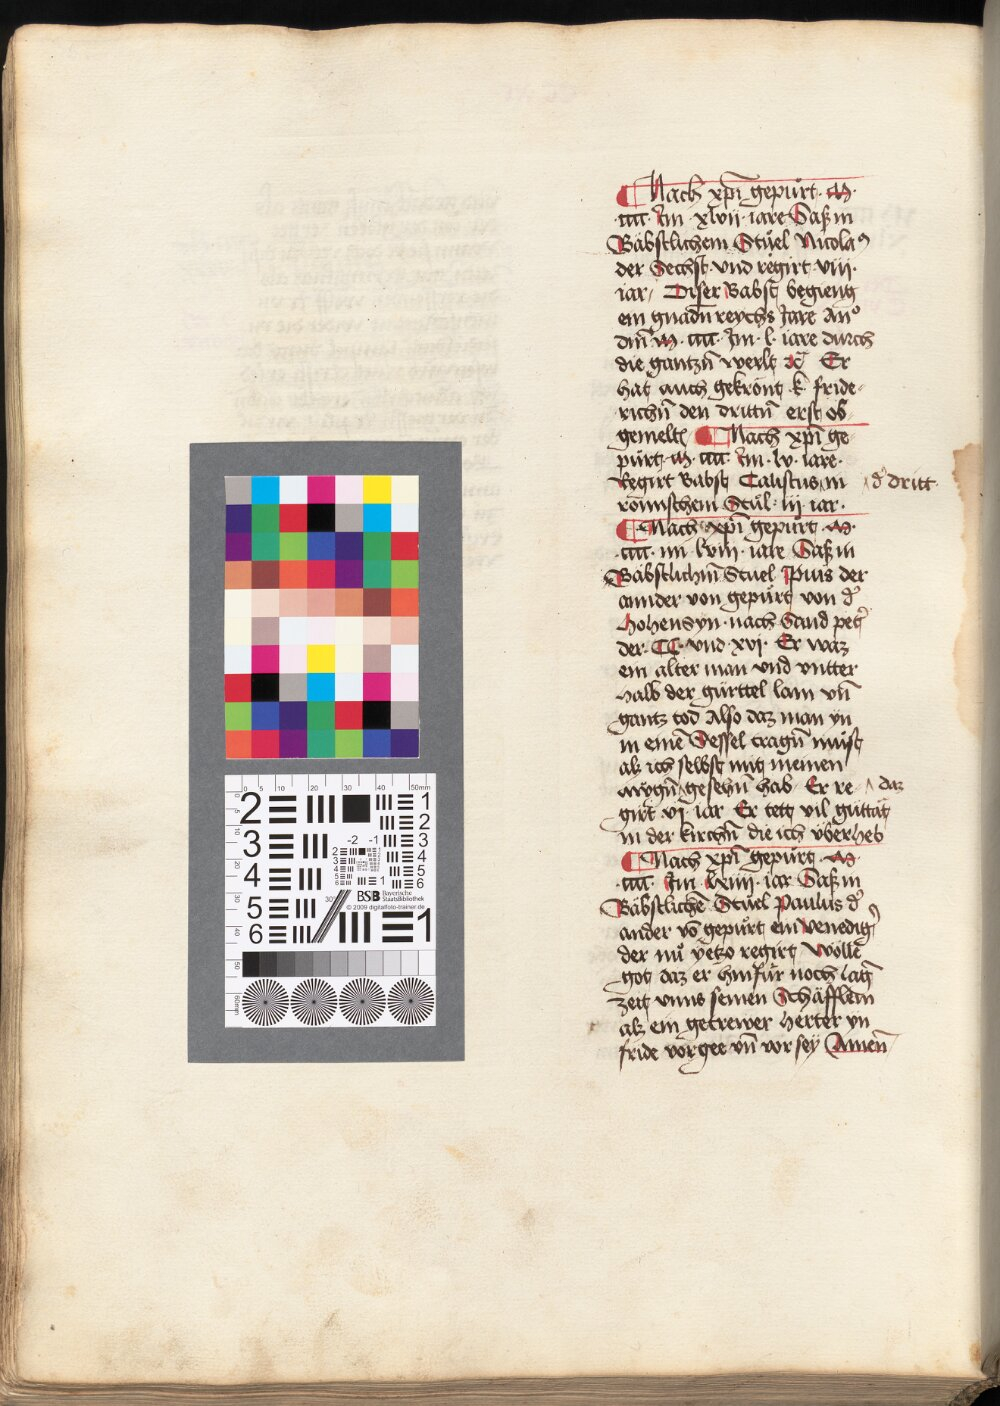 Nach xpi gepürt · M ·
· cccc · Im · xlvii · iare Saß in
Bäbstlichem Stuel Nicolaꝰ
der Sechst · vnd regirt · viii ·
iar / Diser Babst begieng
ein gnadn̄ reychs Jare An°
dm̄ · M · cccc · Jm · l · iare durch
die gantzn̄ werlt ⁊c̄ Er
hat auch gekrönt k̄ fride-
richn̄ den drittn̄ erst ob-
gemelt Nach xpi ge
pürt · M · cccc · Im · lv · iare ·
Regirt Babst Calistus in
d' dritt
römischem Stuel · iii iar ·
Nach xpi gepürt · M ·
· cccc · im · lviii · iare Saß in
Bäbstlichm̄ Stuel Pius der
annder von gepürt von d'
hohensyn · nach Sand pet'
der · CC · vnd · xvi · Er waz
ein alter man vnd vntter
halb der gürttel lam vn̄
gantz tod Also daz man yn
in eine Sessel tragn̄ müst
alz ich selbst mit meinen
awgn̄ gesehn̄ hab · Er re-
daz
girt vi · iar Er tett vil guttät
in der kirchn̄ die ich vberheb
Nach xpi gepürt · M ·
· cccc · Im · lxiiii · iar Saß in
Bäbstliche Stuel Paulus d'
ander vō gepürt ein venedig'
der nu yetzo regirt Wölle
got daz er hinfür noch lāg
zeit vnns seinen Schäfflein
alz ein getrewer herter yn
fride vorgee vn̄ vor sey Amen
0 5 10 20 30 40 50mm
2 1
2
3 3
4 4
5
6
5
6
-2 -1
30°
BSB Bayerische
StaatsBibliothek
© 2009 digitalfoto-trainer.de
1